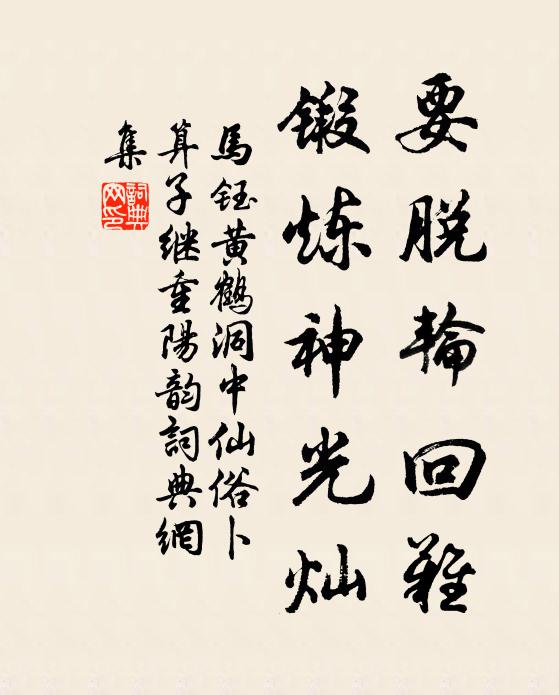 要脱輪回難
锻炼神光灿
馬鈺黄鶴洞中仙俗卜
算子继重陽韵詞典網
集
詞典
网印